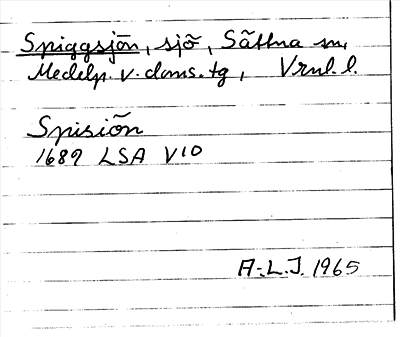 Spiggsjön, sjö, Sättna sn,
Medelp. v. doms.tg, Vrnl. l.
Spisiön
1689 LSA V10
A-L.J. 1965